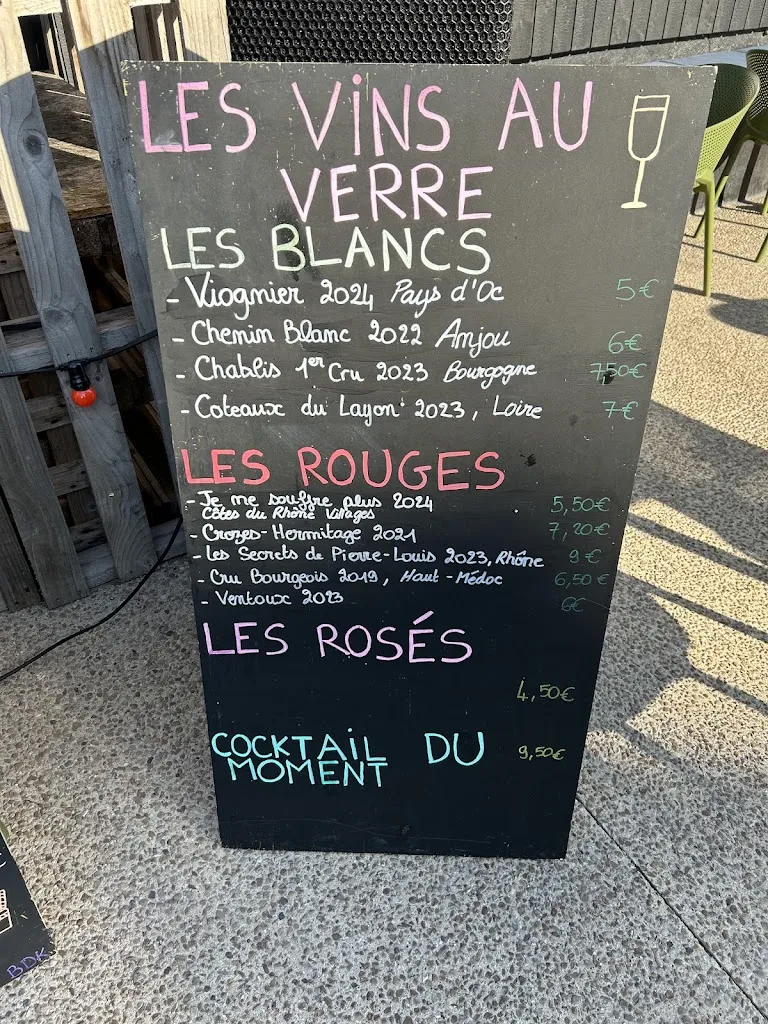 LES ViNS AU
VERRE
LES BLANCS
- Viognier 2024 Pays d'Oc 5€
- Chemin Blanc 2022 Amjou 6€
- Chablis 1er Cru 2023 Bourgogne 750€
- Coteaux du Layon 2023, Loire 7€
LES ROUGES
- Je me souffre plus 2024 5,50€
Côtes du Rhône Villages
- Crozes-Hermitage 2021 7,20€
- Les Secrets de Pierre-Louis 2023, Rhône 9€
- Cru Bourgeois 2019, Haut-Médoc 6,50€
- Ventoux 2023 6€
LES ROSÉS
4,50€
COCKTAiL DU 9,50€
MOMENT
BDK